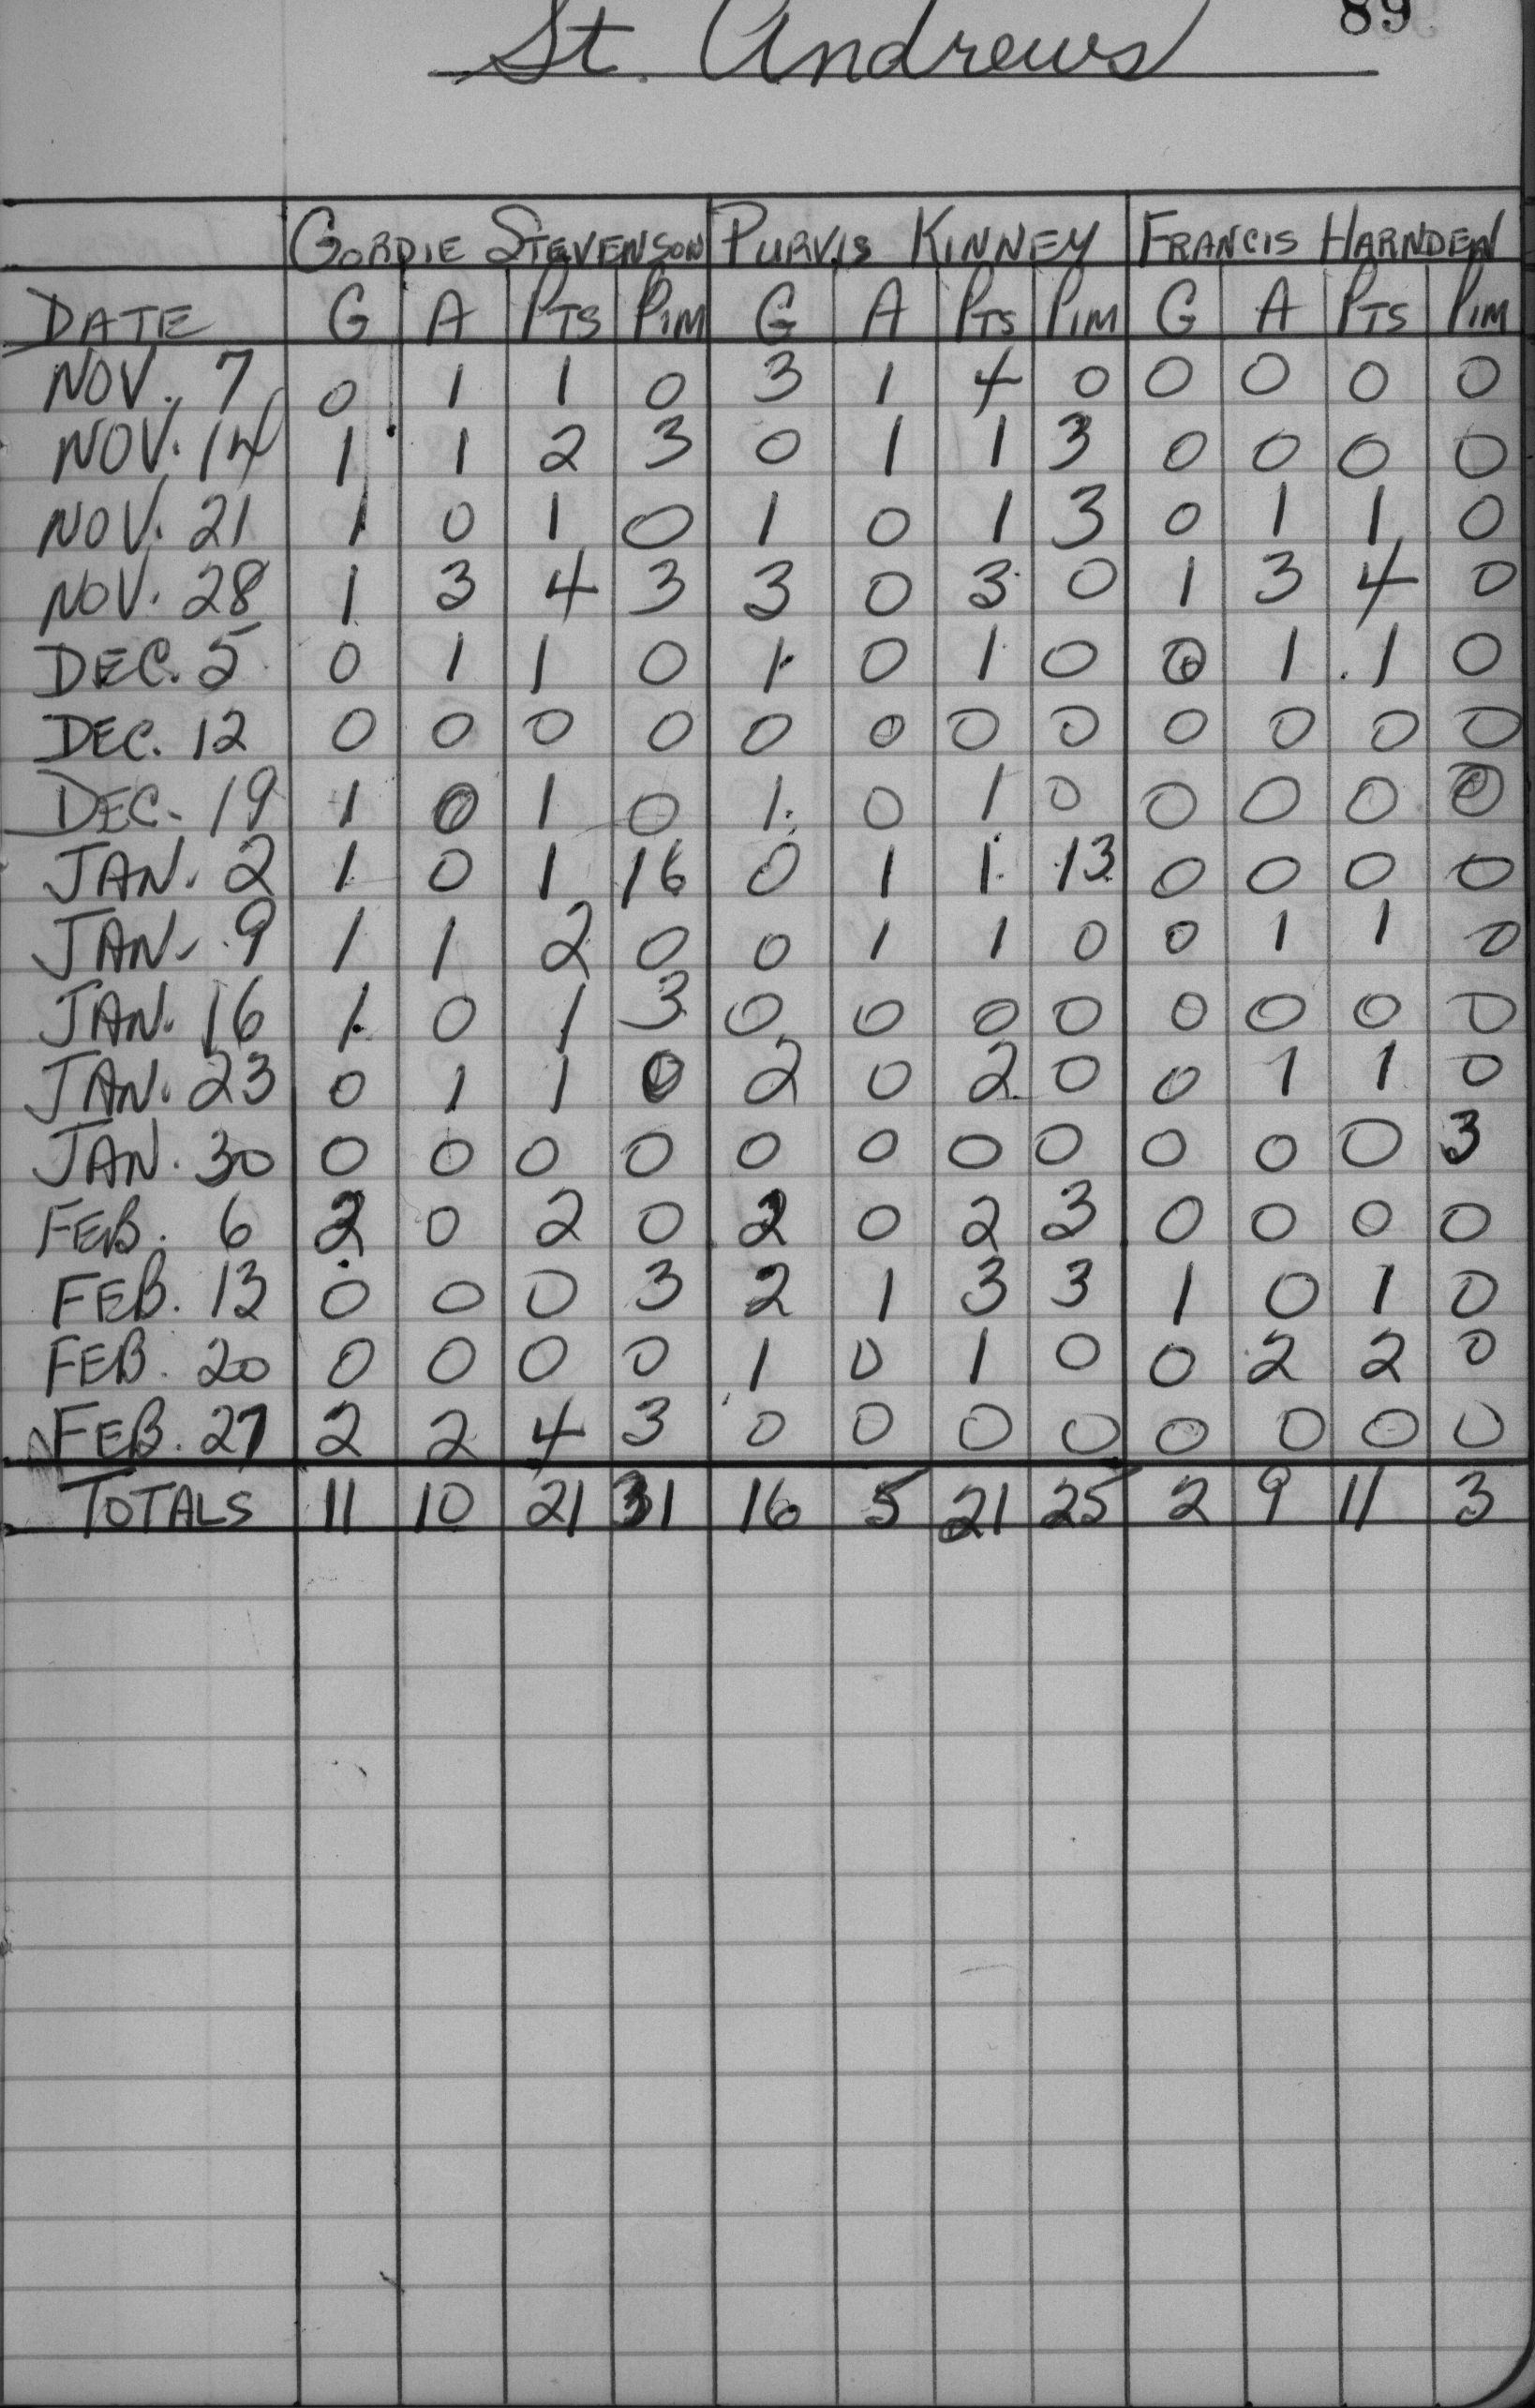 89
St. Andrews
GORDIE STEVENSON PURVIS KINNEY FRANCIS HARNDEN
DATE G A PTS PIM G A PTS PIM G A PTS PIM
NOV. 7 0 1 1 0 3 1 4 0 0 0 0 0
NOV. 14 1 1 2 3 0 1 1 3 0 0 0 0
NOV. 21 1 0 1 0 1 0 1 3 0 1 1 0
NOV. 28 1 3 4 3 3 0 3 0 1 3 4 0
DEC. 5 0 1 1 0 1 0 1 0 0 1 1 0
DEC. 12 0 0 0 0 0 0 0 0 0 0 0 0
DEC. 19 1 0 1 0 1 0 1 0 0 0 0 0
JAN. 2 1 0 1 16 0 1 1 13 0 0 0 0
JAN. 9 1 1 2 0 0 1 1 0 0 1 1 0
JAN. 16 1 0 1 3 0 0 0 0 0 0 0 0
JAN. 23 0 1 1 0 2 0 2 0 0 1 1 0
JAN. 30 0 0 0 0 0 0 0 0 0 0 0 3
FEB. 6 2 0 2 0 2 0 2 3 0 0 0 0
FEB. 13 0 0 0 3 2 1 3 3 1 0 1 0
FEB. 20 0 0 0 0 1 0 1 0 0 2 2 0
FEB. 27 2 2 4 3 0 0 0 0 0 0 0 0
TOTALS 11 10 21 31 16 5 21 25 2 9 11 3